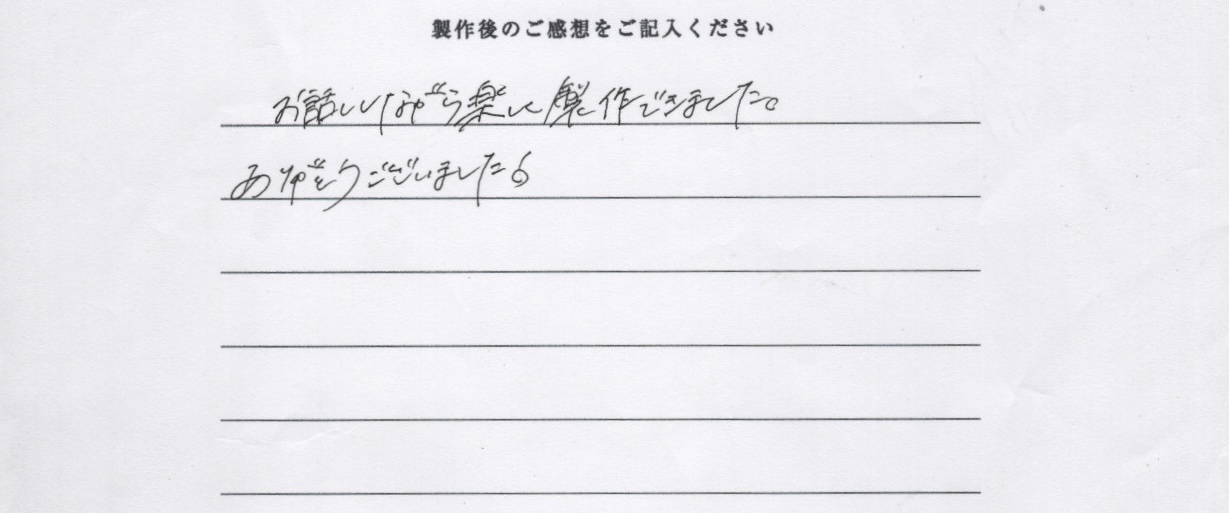 製作後のご感想をご記入ください
お話ししながら楽しく製作できました。
ありがとうございました。